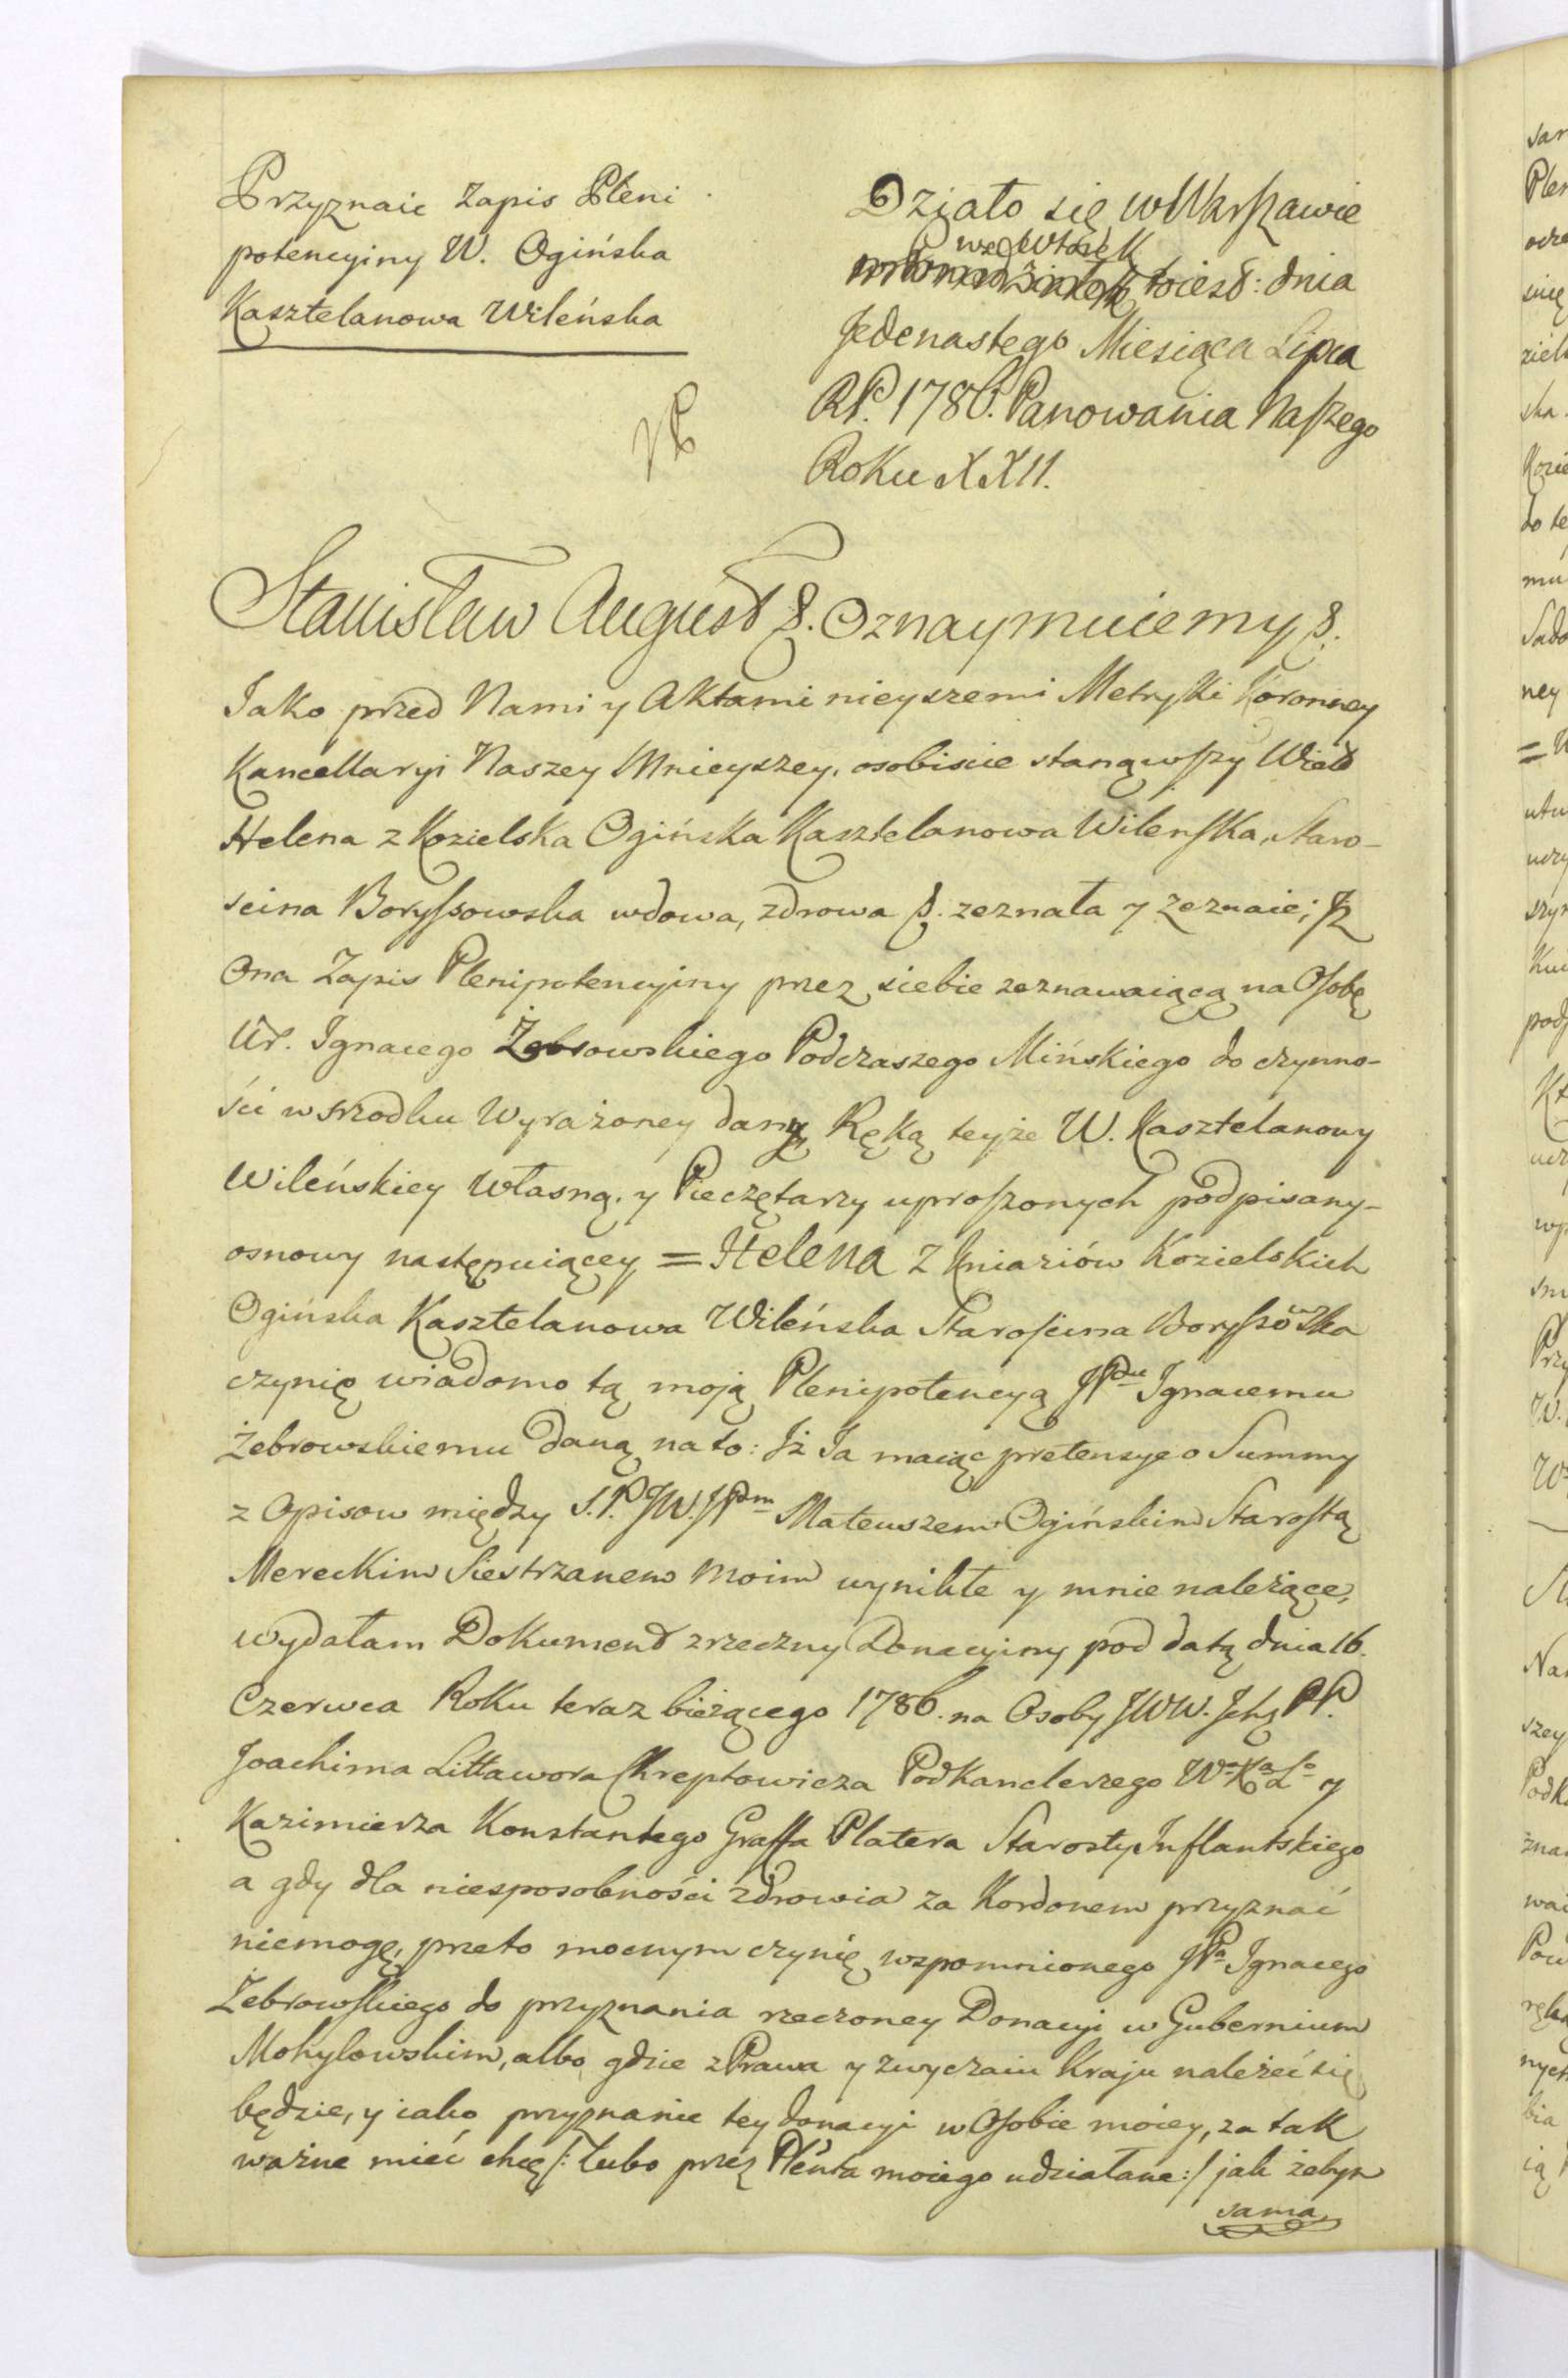 Przyznaie Zapis Pleni
potencyiny W. Ogińska
Kasztelanowa Wileńska
Działo się w Warszawie
we Wtorek
to iest: dnia
Jedenastego Miesiąca Lipca
RP. 1786. Panowania Naszego
Roku XXII.
Stanisław August &. Oznaymuiemy &.
Jako przed Nami y Aktami nieyszemi Metryki Koronney
Kancellaryi Naszey Mnieyszey, osobiscie stanąwszy Wiel
Helena z Kozielska Ogińska Kasztelanowa Wilenska, Staro-
scina Boryssowska wdowa, zdrowa &. zeznała y zeznaie; Jż
Ona Zapis Plenipotencyiny przez siebie zeznawaiącą na Osobę
Ur. Ignacego Żebrowskiego Podczaszego Mińskiego do czynno-
ści w srzodku Wyrażoney dany Ręką teyże W. Kasztelanowy
Wileńskiey własną, y Pieczętarzy uproszonych podpisany-
osnowy następuiącey = Helena z Kniaziów Kozielskich
Ogińska Kasztelanowa Wileńska Starościna Boryssowska
czynię wiadomo tą moją Plenipotencyą JPdu Ignacemu
Żebrowskiemu daną na to: Jż Ja maiąc pretensye o Summy
z Opisow między S.P. JW. JPm Mateuszem Ogińskim Starostą
Mereckim Siestrzanem Moim wynikłe y mnie należące,
wydałam Dokument zrzeczny Donacyiny pod datą dnia 16.
Czerwca Roku teraz bieżącego 1786. na Osoby JWW. Jchę PP.
Joachima Littawora Chreptowicza Podkanclerzego Wo Xa Lo y
Kazimierza Konstantego Graffa Platera Starosty Inflantskiego
a gdy dla niesposobności zdrowia za Kordonem przyznać
niemogę, przeto mocnym czynię wspomnionego JPa Ignacego
Żebrowskiego do przyznania rzeczoney Donacyi w Gubernium
Mohylowskim, albo gdzie z Prawa y zwyczaiu Kraju należeć się
będzie, y iako przyznanie tey donacyi w Osobie moiey, za tak
ważne mieć chcę /: lubo przez Plenta moiego udziałane :/ jak żebym
sama